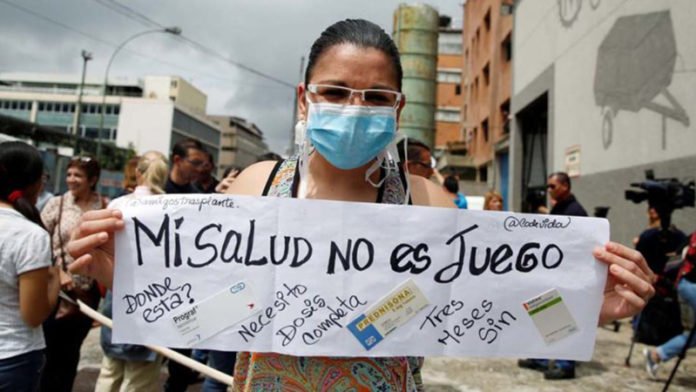 @amigostrasplante.
@codevida
Mi SALUD NO es JUEGO
DONDE está?
Prograf
Necesito Dosis Completa
PREDNISONA
Tres Meses sin